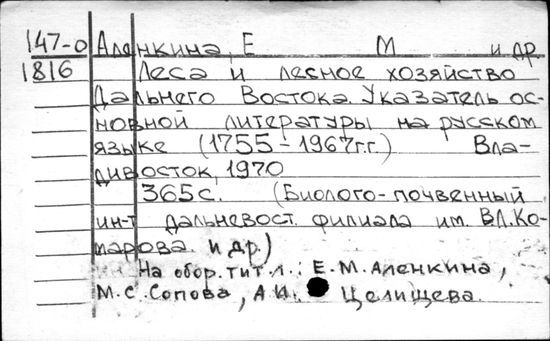 147-0 Аленкина, Е М и др
1816 Леса и лесное хозяйство
Дальнего Востока. Указатель ос-
новной литературы на русском
языке (1755-1967г.г.) Вла-
дивосток, 1970
365с. (Биолого-почвенный
ин-т дальневост. филиала им. ВЛ.Ко-
марова. и др.)
На обор.тит.л.: Е.М.Аленкина,
М.С.Сопова, А.И. Целищева.